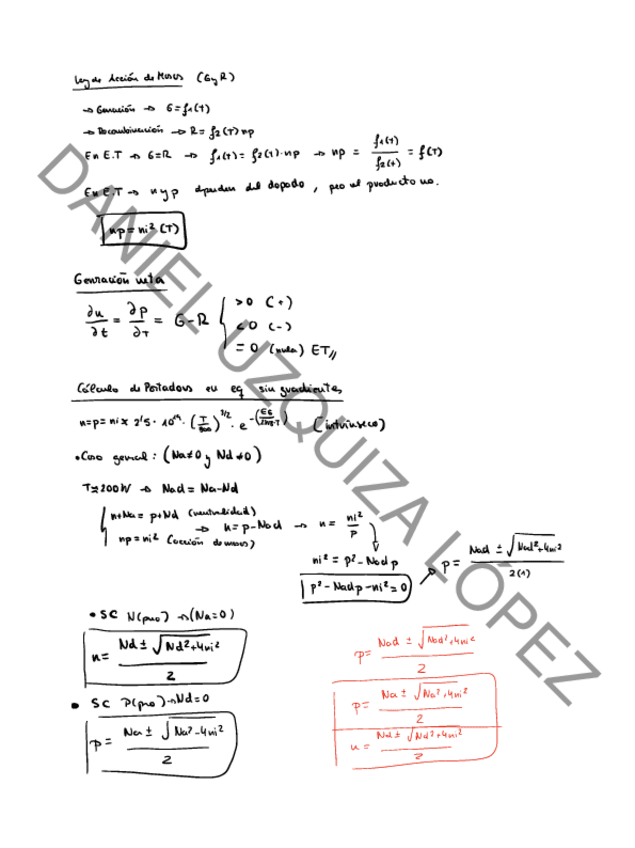 Ley de Acción de Masas (G y R)
→ Generación → G = f₁(T)
→ Recombinación → R = f₂(T) np
En E.T → G = R → f₁(T) = f₂(T)·np → np = f₁(T) / f₂(T) = f(T)
En E.T → n y p dependen del dopado, pero el producto no.
np = ni² (T)
Generación neta
∂n/∂t = ∂p/∂T = G-R { >0 (+)
<0 (-)
= 0 (nula) ET//
Cálculo de Portadores en eq sin gradientes
n = p = ni ≈ 2'5 · 10¹⁹ · (T/300)^3/2 · e^-(EG/2kB·T) (intrínseco)
• Caso general: (Na≠0 y Nd≠0)
→ Nad = Na-Nd
{ n+Na = p+Nd (neutralidad)
np = ni² (acción de masas)
→ n = p-Nad → n = ni²/p
ni² = p² - Nad p
p² - Nad p - ni² = 0
p = Nad ± √Nad²+4ni² / 2(1)
• SC N(puro) → (Na=0)
n = Nd ± √Nd²+4ni² / 2
• SC P(puro) → Nd=0
p = Na ± √Na²-4ni² / 2
p = Nad ± √Nad²+4ni² / 2
p = Na ± √Na²+4ni² / 2
n = Nd ± √Nd²+4ni² / 2
DANIEL UZQUIZA LÓPEZ